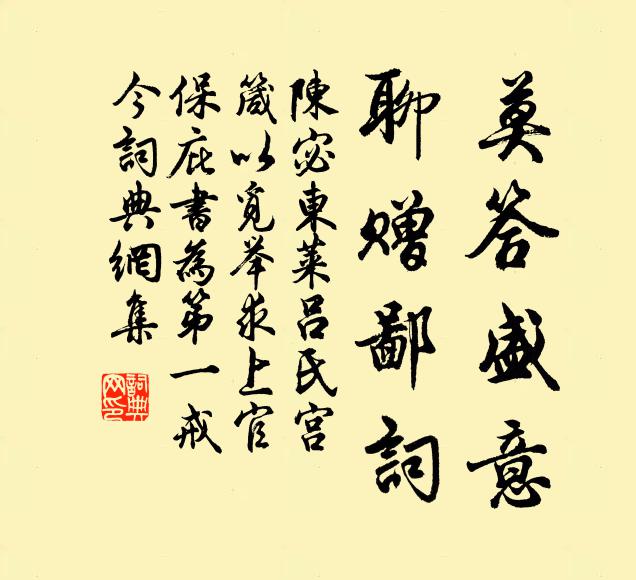 莫答盛意
聊贈鄙詞
陳宓東萊呂氏宫
箴以覓举求上官
保庇書為第一戒
今詞典網集
詞典
网印